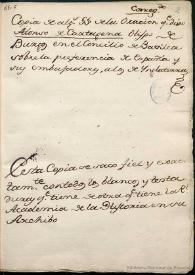 Copia de algs. §§ de la Oracion q.e dijo
Alonso de Cartagena Obispo de
Burgos en el Concilio de Basilea
sobre la preferencia de España y
sus embaxadores, a los de Ynglaterra
Esta Copia se saco fiel y exac
tam.te con todo lo blanco, y testa
duras q.e tiene de otra q.e tiene la R.l
Academia de la Historia en su
Archibo